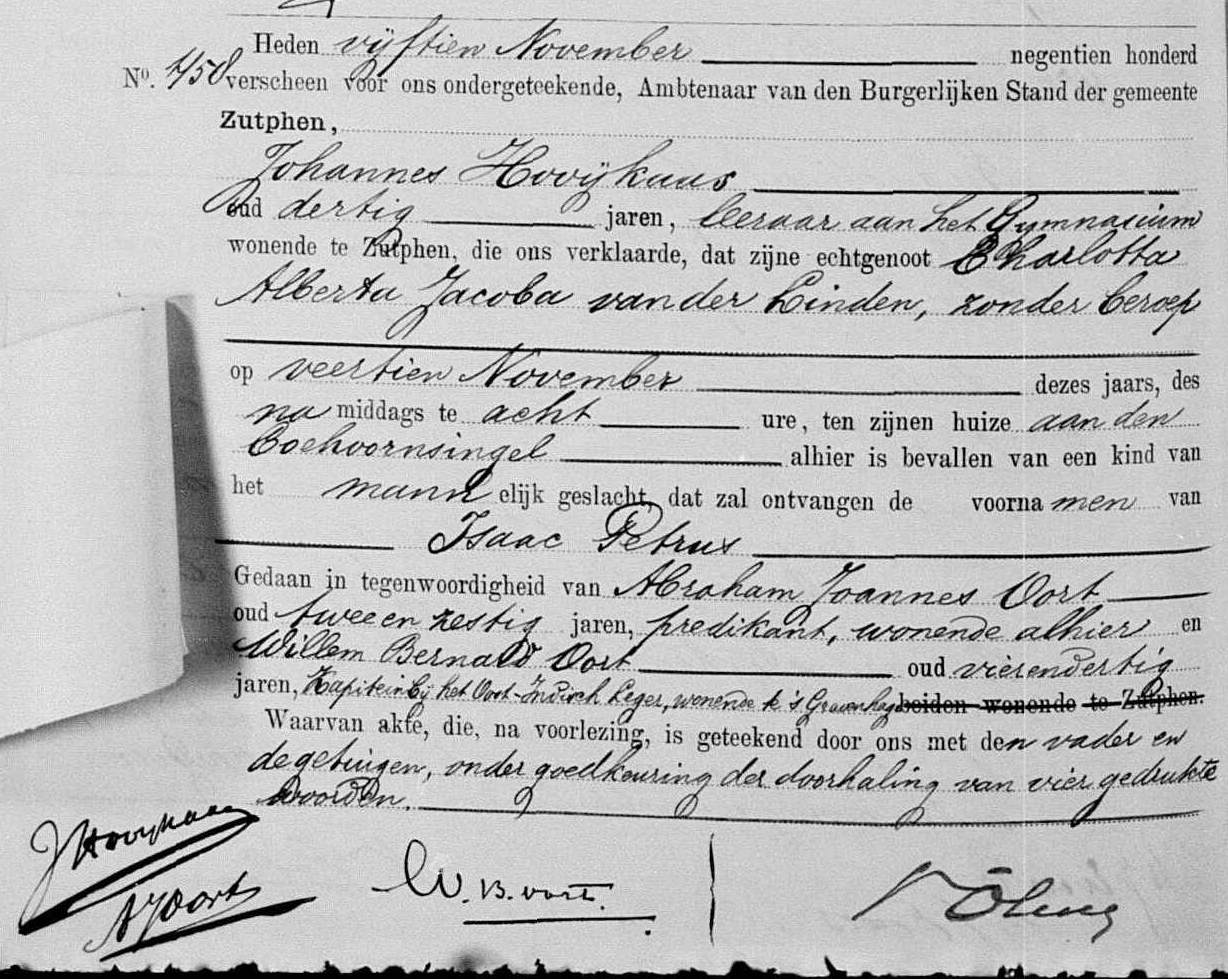 Heden vijftien November negentien honderd
No. 450 verscheen voor ons ondergeteekende, Ambtenaar van den Burgerlijken Stand der gemeente
Zutphen,
Johannes Hooijkaas
oud dertig jaren, leeraar aan het Gymnasium
wonende te Zutphen, die ons verklaarde, dat zijne echtgenoot Charlotta
Alberta Jacoba van der Linden, zonder beroep
op veertien November dezes jaars, des
na middags te acht ure, ten zijnen huize aan den
Coehoornsingel alhier is bevallen van een kind van
het mann elijk geslacht, dat zal ontvangen de voorna men van
Isaac Petrus
Gedaan in tegenwoordigheid van Abraham Joannes Oort
oud twee en zestig jaren, predikant, wonende alhier en
Willem Bernard Oort oud vierendertig
jaren, Kapitein bij het Oost-Indisch Leger, wonende te 's Gravenhage beiden wonende te Zutphen.
Waarvan akte, die, na voorlezing, is geteekend door ons met den vader en
de getuigen, onder goedkeuring der doorhaling van vier gedrukte
woorden.
J Hooykaas
A J Oort
W. B. Oort.